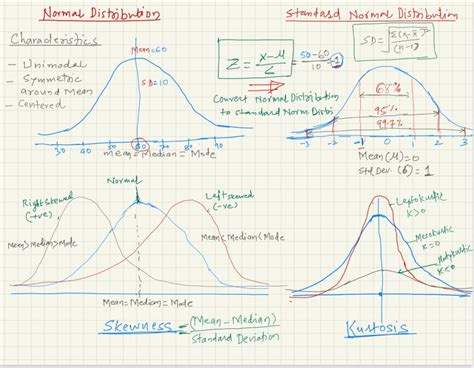 Normal Distribution
Characteristics
- Unimodal
- Symmetric
around Mean
- Centered
Mean=60
SD=10
30 40 50 60 70 80 90
mean=Median=Mode
Z = x-μ/σ = 50-60/10 = -1
Convert Normal Distribution
to Standard Norm Distri
Standard Normal Distribution
SD = √Σ(x-x̄)²/(n-1)
68%
95%
99.7%
-3 -2 -1 0 1 2 3
Mean(μ)=0
std Dev (σ)=1
Normal
Right skewed
(+ve)
Left skewed
(-ve)
Mean>Median>Mode
Mean<Median<Mode
Mean=Median=Mode
Skewness = (Mean-Median)/Standard Deviation
Leptokurtic
K>0
Mesokurtic
K=0
Platykurtic
K<0
Kurtosis